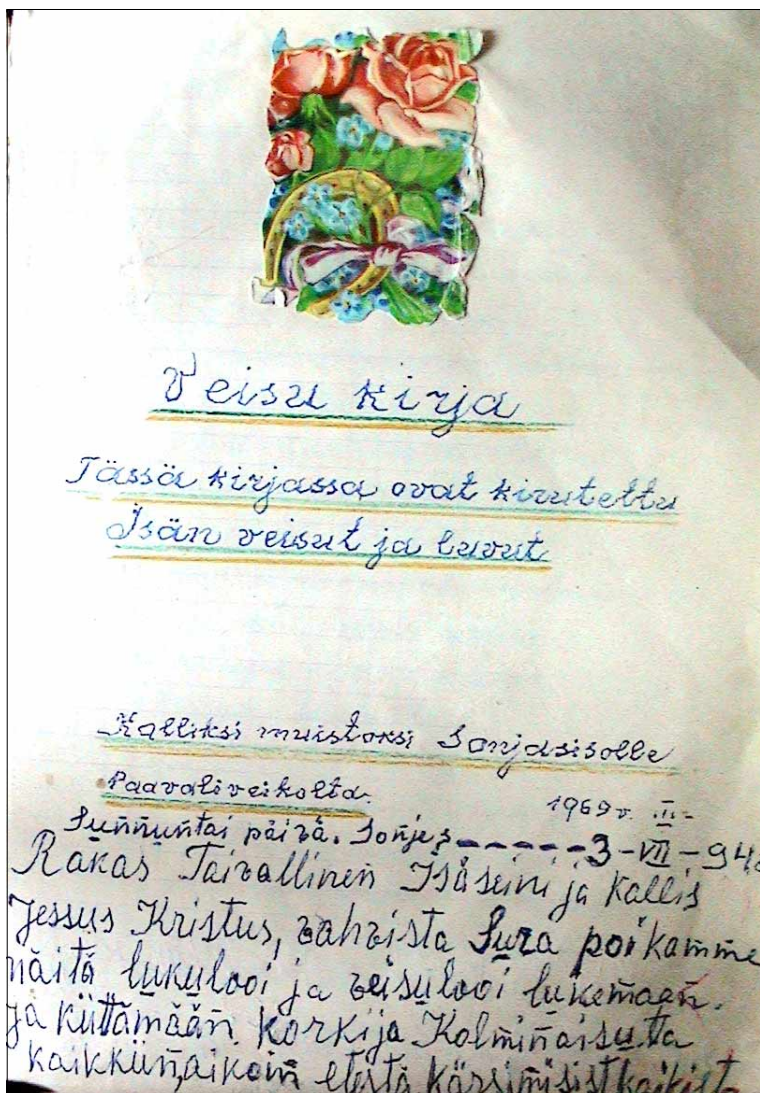 Veisu kirja
Tässä kirjassa ovat kirutettu
Isän veisut ja luvut
Kalliksi muistoksi Sonjasisolle
Paavaliveikolta.
1969 v. III-
Sunnuntai päivä. 3-VII-94
Rakas Taivallinen Isäseini ja kallis
Jessus Kristus, vahvista Sura poikamme
näitä lukulooi ja veisulooi lukemaan.
ja kiittämään. korkija Kolminaisuta
kaikkiin, aikoin etestä kärsimisist kaikista